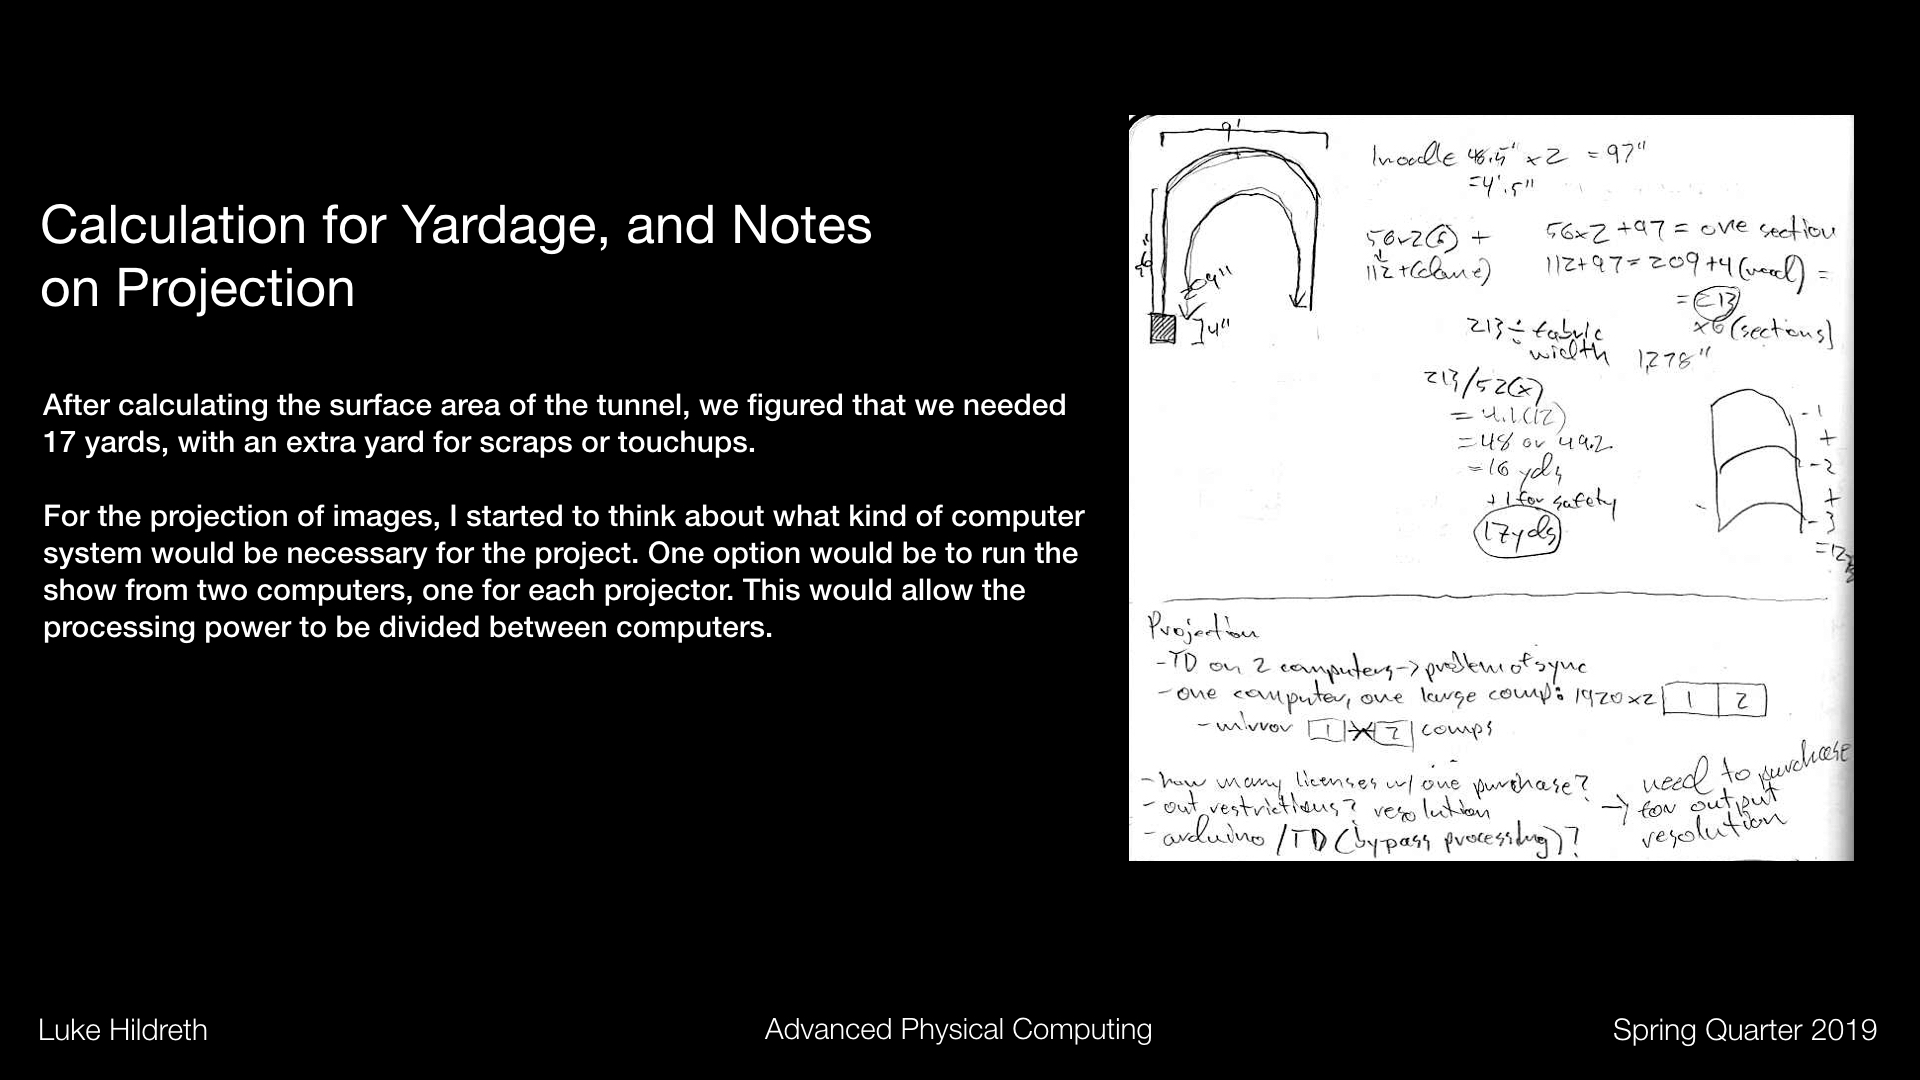 Calculation for Yardage, and Notes
on Projection
After calculating the surface area of the tunnel, we figured that we needed
17 yards, with an extra yard for scraps or touchups.
For the projection of images, I started to think about what kind of computer
system would be necessary for the project. One option would be to run the
show from two computers, one for each projector. This would allow the
processing power to be divided between computers.
9'
1noodle 48.5" x 2 = 97"
=4'.5"
56x2(6) +
112+(dome)
56x2+97 = one section
112+97=209+4(wood) =
= 213
x6 (sections)
1,278"
56"
209"
]4"
213 ÷ fabric
width
213/52(x)
= 4.1(12)
=48 or 49.2
=16 yds
+1 for safety
17yds
-1
+
-2
+
-3
=12
Projection
-TD on 2 computers->problem of sync
-one computer, one large comp: 1920x2 1 2
-mirror 1 2 comps
-how many licenses w/ one purchase?
-out restrictions? resolution
-arduino /TD (bypass processing)?
need to purchase
-> for output
resolution
Luke Hildreth
Advanced Physical Computing
Spring Quarter 2019